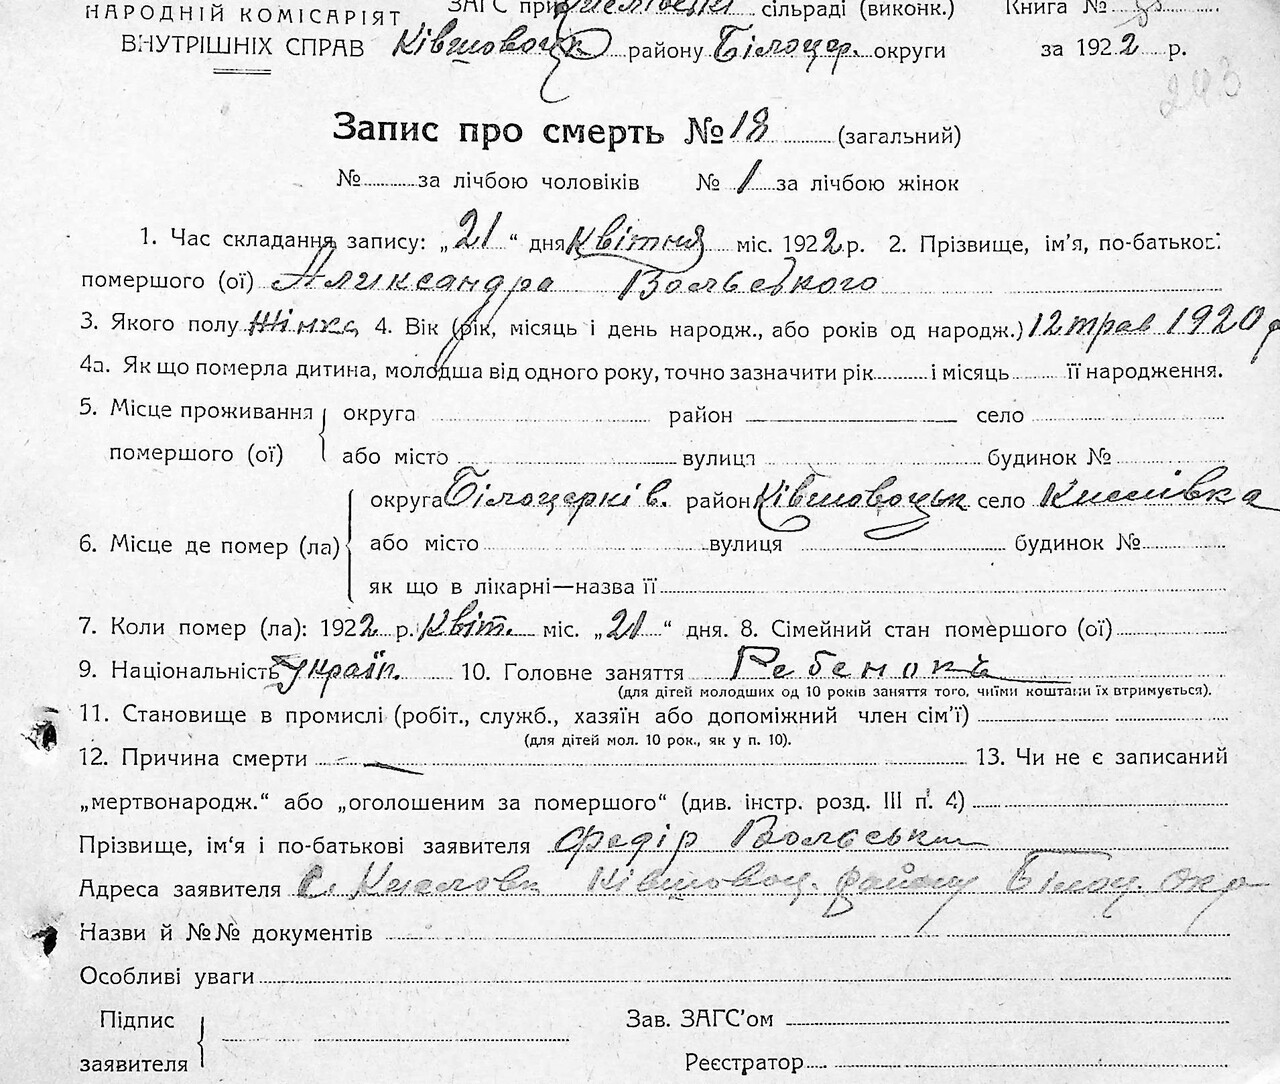 НАРОДНІЙ КОМІСАРІЯТ ЗАГС при сільраді (виконк.) Книга №
ВНУТРІШНІХ СПРАВ Ківшовоцьк району Білоцер. округи за 1922 р.
243
Запис про смерть № 18 (загальний)
№ за лічбою чоловіків № 1 за лічбою жінок
1. Час складання запису: „21“ дня Квітня міс. 1922 р. 2. Прізвище, ім'я, по-батькові
помершого (ої) Александра Вольського
3. Якого полу Жінка 4. Вік (рік, місяць і день народж., або років од народж.) 12 трав 1920 р
4а. Як що померла дитина, молодша від одного року, точно зазначити рік і місяць її народження.
5. Місце проживання помершого (ої) округа район село
або місто вулиця будинок №
6. Місце де помер (ла) округа Білоцерків. район Ківшовоцьк село Кислівка
або місто вулиця будинок №
як що в лікарні—назва її
7. Коли помер (ла): 1922 р. Квіт. міс. „21“ дня. 8. Сімейний стан помершого (ої)
9. Національність україн. 10. Головне заняття Ребенокъ
(для дітей молодших од 10 років заняття того, чиїми коштами їх втримується).
11. Становище в промислі (робіт., служб., хазяїн або допоміжний член сім'ї)
(для дітей мол. 10 рок., як у п. 10).
12. Причина смерти — 13. Чи не є записаний
„мертвонародж.“ або „оголошеним за помершого“ (див. інстр. розд. III п. 4)
Прізвище, ім'я і по-батькові заявителя Федір Вольський
Адреса заявителя С. Кисловк Ківшовоц. району Білоц. Окр
Назви й №№ документів
Особливі уваги
Підпис заявителя Зав. ЗАГС'ом
Реєстратор